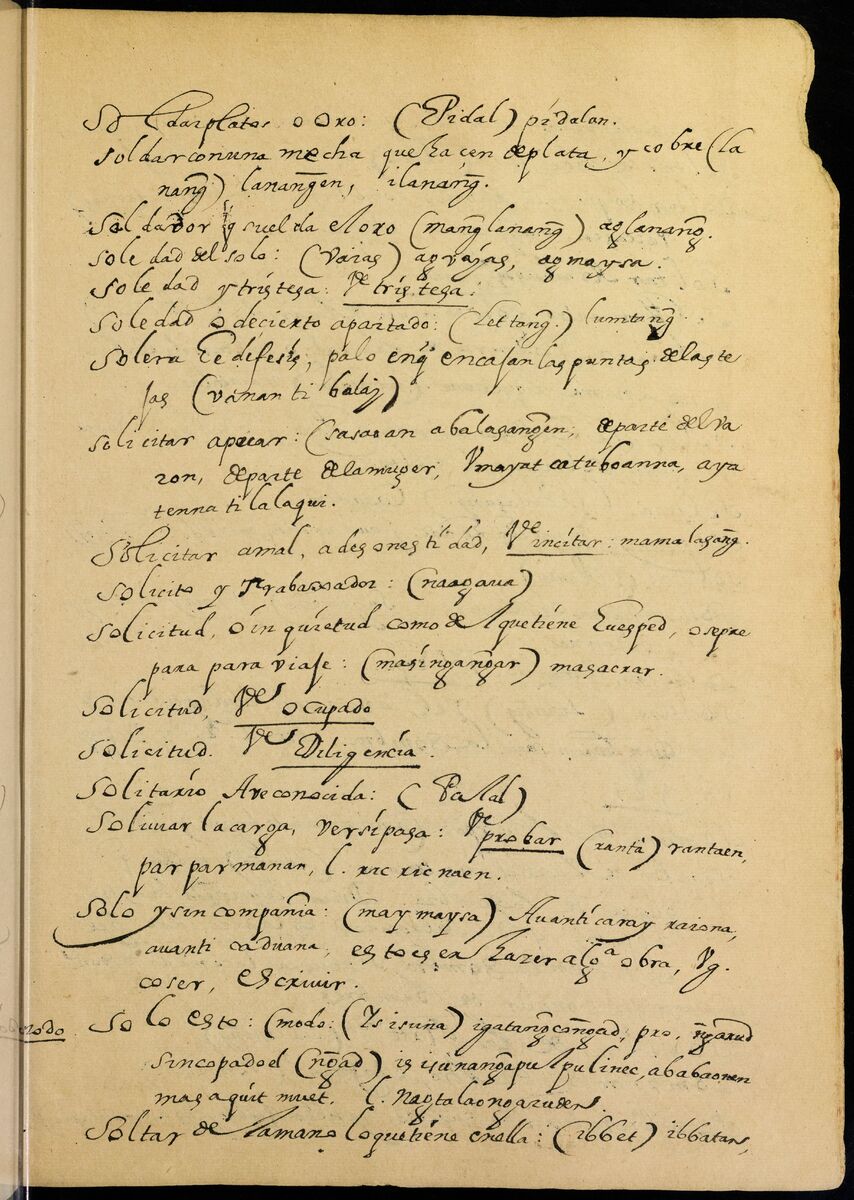 Soldar platos o oro: (Pidal) pidalan.
Soldar con una mecha que hacen de plata, y cobre (la
nang̃) lanang̃en, ilanang̃.
Soldador q̃ suelda el oro (mang̃lanang̃) aglanang̃.
Soledad del solo: (vaias) agvajas, agmaysa.
Soledad y tristesa: Vᵉ tristesa.
Soledad o decierto apartado: (let tang̃.) lumtang̃
Solera palo en q̃ encajan las puntas de las te
jas (vanan ti balaj)
Solicitar apecar: (sasaoan abalasang̃en; de parte del va
ron, de parte de la muger, Vmayat catuboanna, aya
tenna ti lalaqui.
Solicitar amal, a desonestidad, Vᵉ incitar: mamalasang̃.
Solicito y Trabaxador: (naagaua)
Solicitud, o inquietud como de el que tiene huesped, o sepre
para para viaje: (masingang̃ar) masacrar.
Solicitud, Vᵉ ocupado
Solicitud. Vᵉ Diligencia.
Solitario Ave conocida: (Palal)
Soliviar la carga, ver si pasa: Vᵉ probar (ranta) rantaen,
par parmanan, l. ricricnaen.
Solo y sin compañia: (maymaysa) Avanti caray raiona,
avanti caduana, esto es en hazer algᵃ obra, Vg.
coser, escrivir.
modo Solo esto: (modo: (Ys isuna) igatang̃cong̃ad, pro, ng̃arud
sincopado el (ng̃ad) is isunang̃a pulpulinec, ababaonen
masaquit nuet. l.
Soltar de la mano lo que tiene en ella: (ibbet) ibbatan,